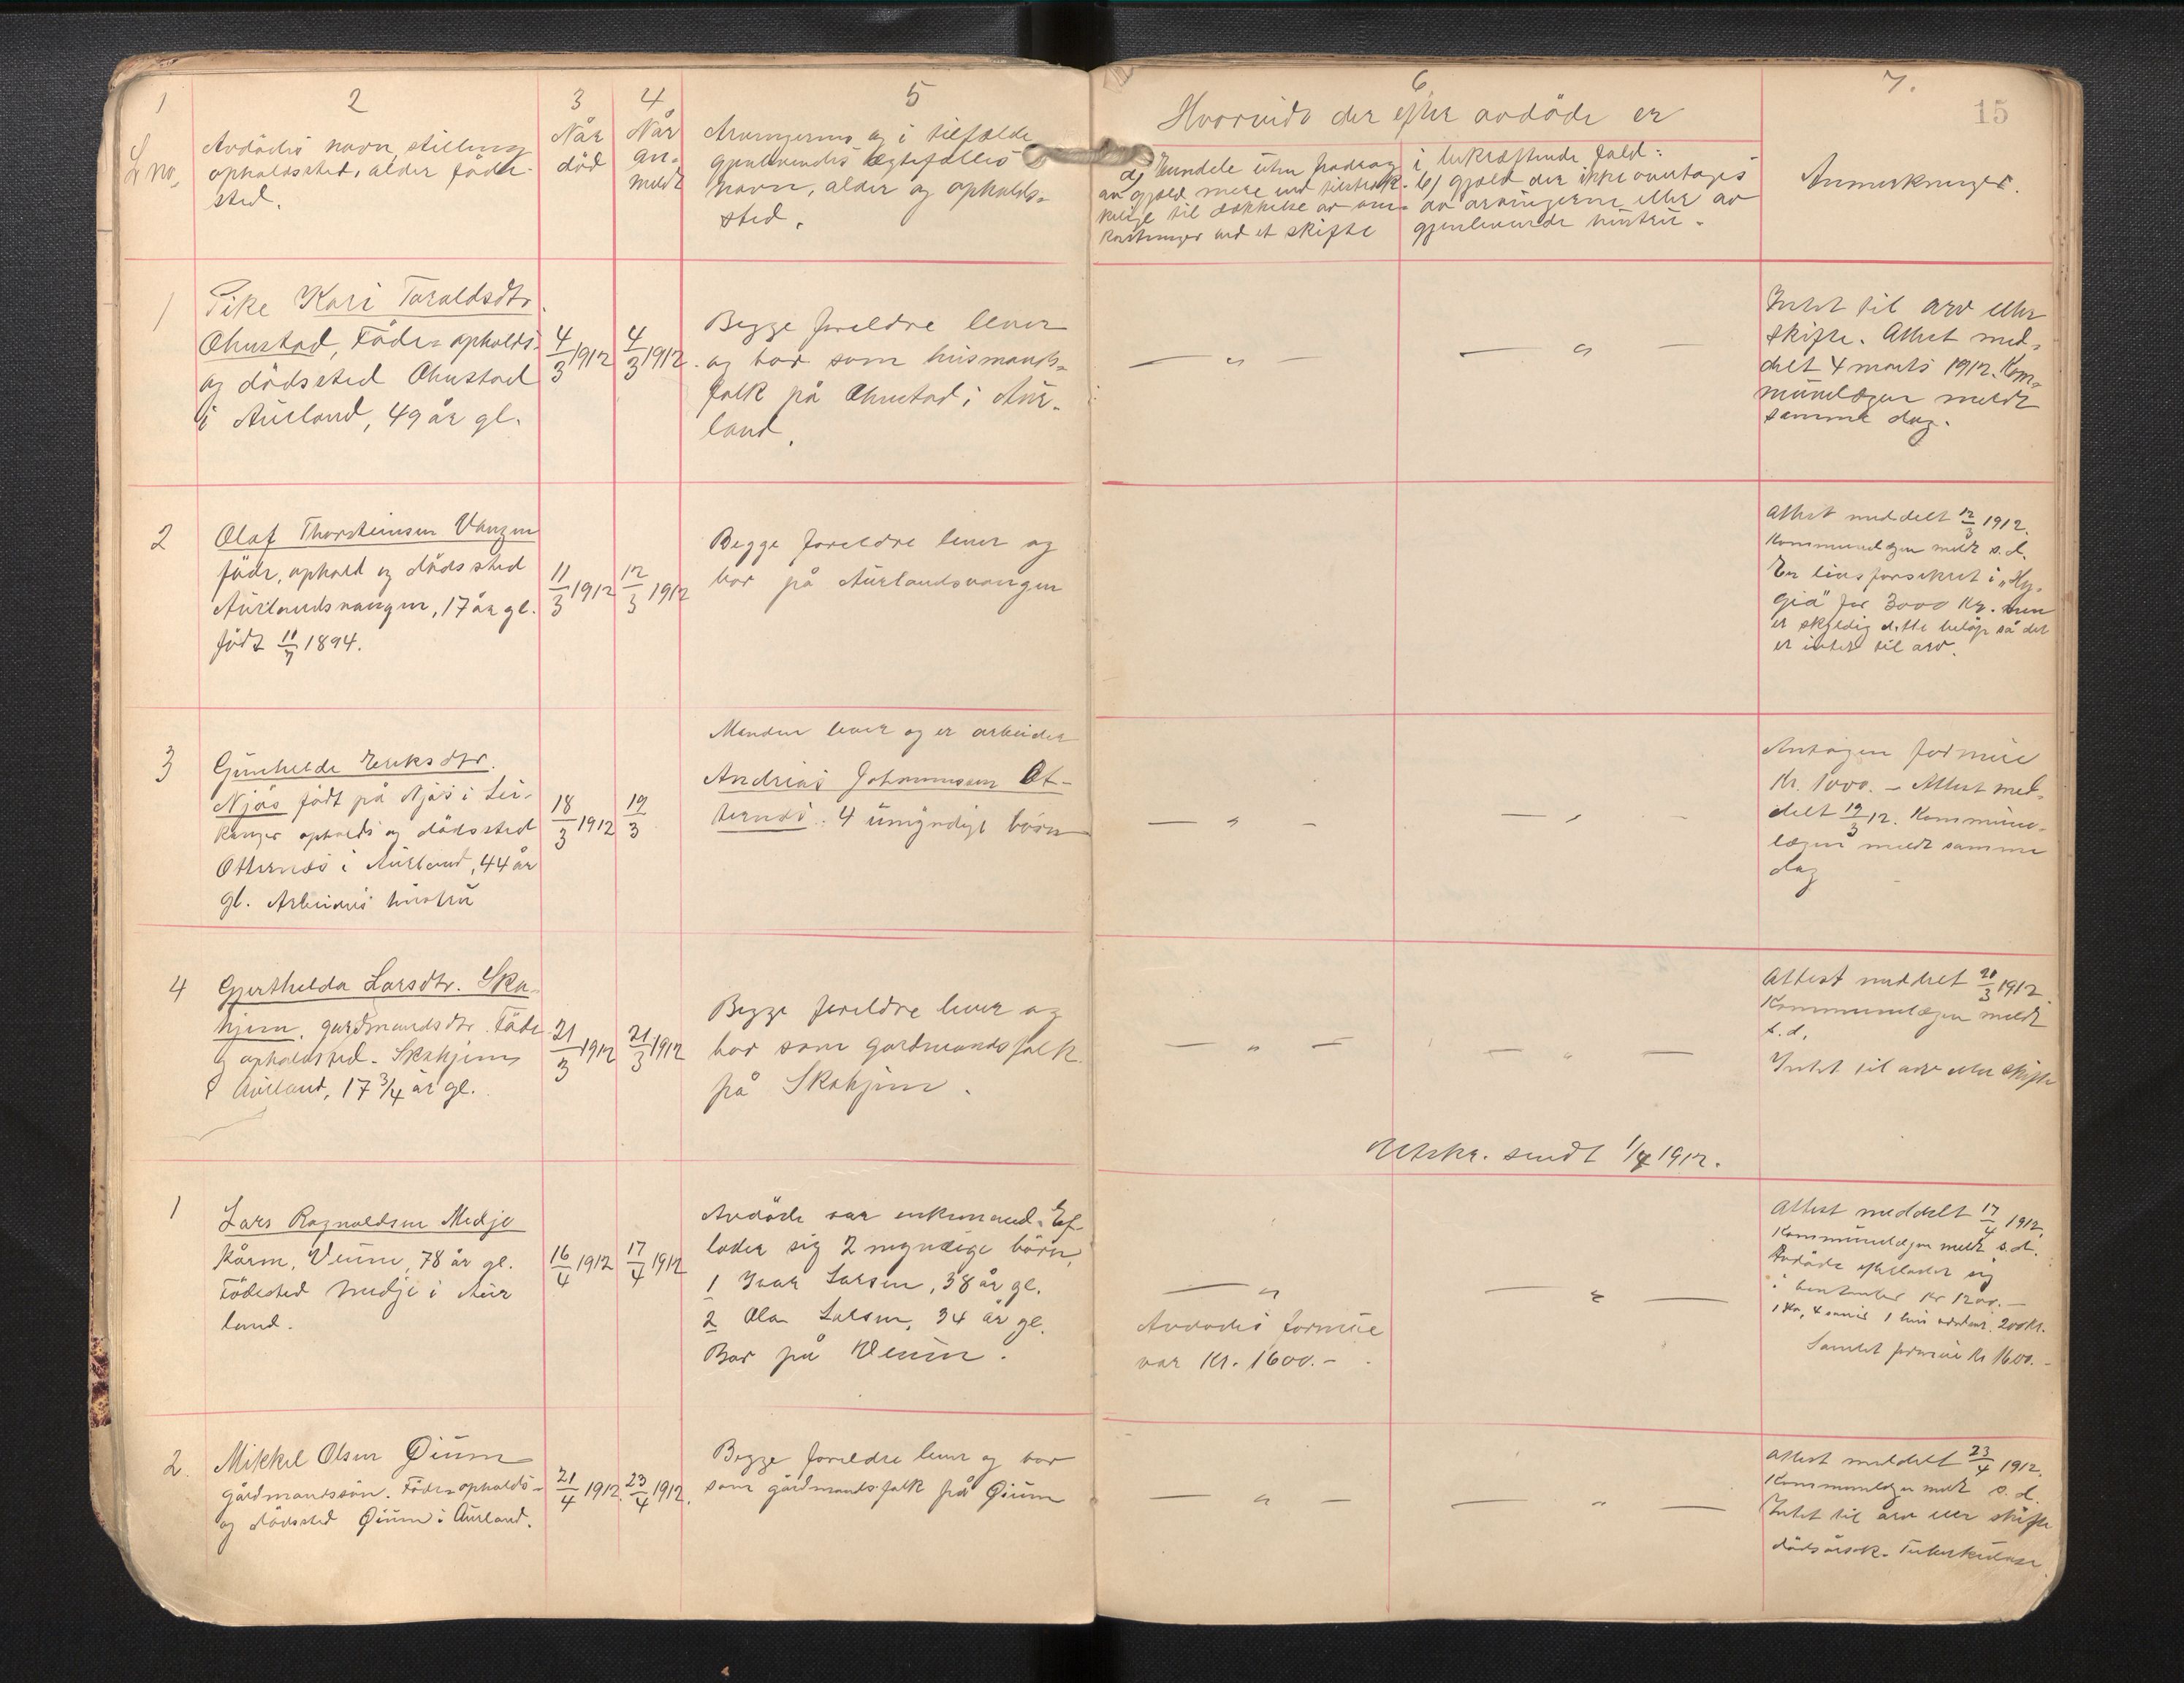 1
2
3
4
5
6
7.
15
L no,
Avdödes navn, stilling
opholdssted, alder föde-
sted.
Når
död
Når
an-
meldt
Arvingernes og i tilfælde
gjenlevendes ægtefælles
navn, alder og opholds-
sted.
Hvorvidt der efter avdöde er
a) Eiendele uten fradrag
av gjæld mere end tilstræk-
kelige til dækkelse av om-
kostninger ved et skifte
i bekræftende fald:
b) gjæld der ikke overtages
av arvingerne eller av
gjenlevende hustru.
Anmerkninger.
1
Pike Kari Taraldsdtr
Ohnstad, Föde- opholds-
og dödssted Ohnstad
i Aurland, 49 år gl.
4/3 1912
4/3 1912.
Begge foreldre lever
og bor som husmands-
folk på Ohnstad i Aur-
land.
— " —
— " —
Intet til arv eller
skifte. Attest med-
delt 4 marts 1912. Kom-
munelægen meldt
samme dag.
2
Olaf Thorsteinsen Vangen
föde, ophold og dödssted
Aurlandsvangen, 17 år gl.
födt 11/7 1894.
11/3 1912
12/3 1912
Begge foreldre lever og
bor på Aurlandsvangen
Attest meddelt 12/3 1912.
Kommunelægen meldt s.d.
Er livsforsikret i "Hy-
gia" for 3000 Kr. men
er skyldig dette beløp så det
er intet til arv.
3
Gunhilde Eriksdtr.
Njøs födt på Njøs i Lei-
kanger opholds og dödssted
Otternes i Aurland, 44 år
gl. Arbeiders hustru
18/3 1912
19/3
Manden lever og er arbeider
Andreas Johannesen Ot-
ternes. 4 umyndige börn
— " —
— " —
Antagen formue
Kr. 1000. - Attest med-
delt 19/3 12. Kommune-
lægen meldt samme
dag
4
Gjerthilda Larsdtr. Ska-
hjem, gardmandsdtr. Föde
og opholdssted - Skahjem
i Aurland, 17 3/4 år gl.
21/3 1912
21/3 1912
Begge foreldre lever og
bor som gardmandsfolk
på Skahjem.
— " —
— " —
Attest meddelt 21/3 1912.
Kommunelægen meldt
s.d.
Intet til arv eller skifte
Utskr. sendt 1/4 1912.
1
Lars Ragnvaldsen Medje
Kårm, Veum, 78 år gl.
Födested Medje i Aur
land.
16/4 1912
17/4 1912
Avdöde var enkemand. Ef-
lader sig 2 myndige börn,
1 Ivar Larsen, 38 år gl.
2 Ola Larsen, 34 år gl.
Bor på Veum.
— "
Avdödes formue
var Kr. 1600.-
— " —
Attest meddelt 17/4 1912.
Kommunelægen meldt s.d.
Avdöde efterlader sig
i kontanter kr 1200.-
1 ko, 4 sauer 1 hus 200 kr.
Samlet formue Kr 1600.-
2.
Mikkel Olsen Öium
gårdmandssön. Föde- opholds-
og dödssted Öium i Aurland.
21/4 1912.
23/4 1912.
Begge foreldre lever og bor
som gårdmandsfolk på Öium
— " —
— " —
Attest meddelt 23/4 1912.
Kommunelægen meldt s.d.
Intet til arv eller skifte
dödsårsak - Tuberkulose.